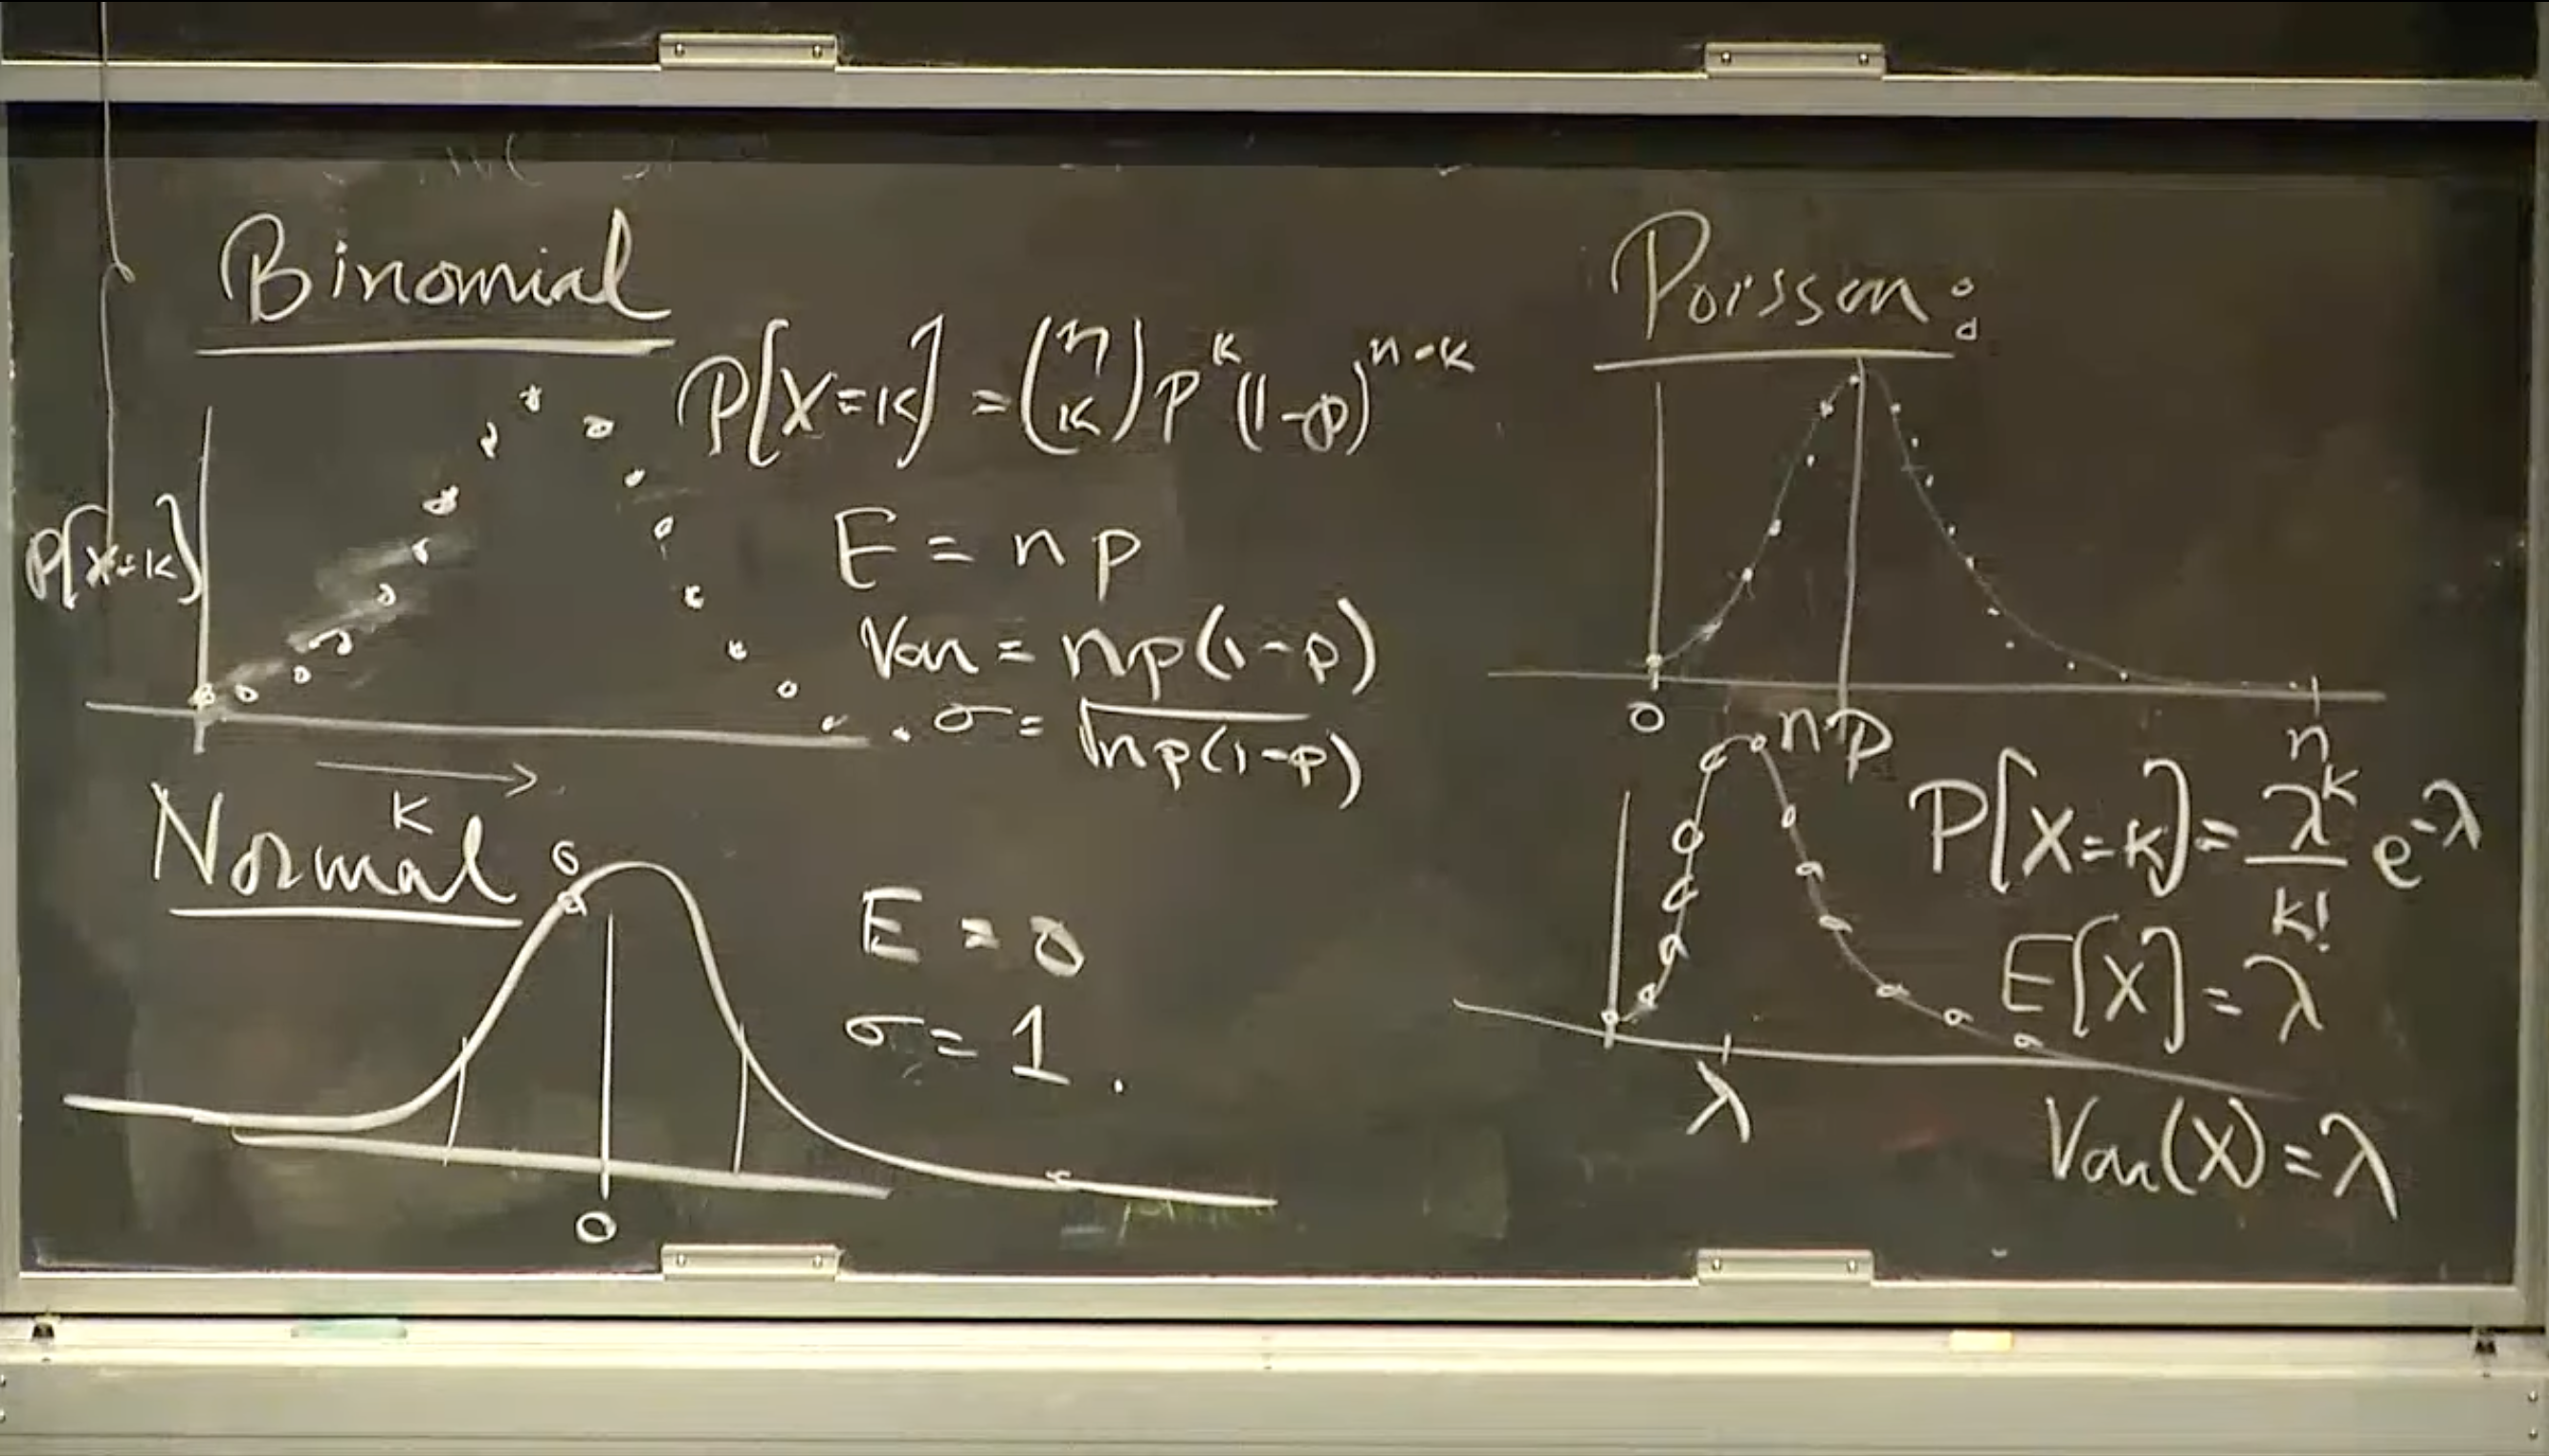 Binomial
P[X=k] = (n k) p^k (1-p)^n-k
P[X=k]
E = np
Var = np(1-p)
σ = √np(1-p)
k
Normal
E = 0
σ = 1.
0
Poisson:
0
np
n
P[X=k] = λ^k/k! e^-λ
E[X] = λ
λ
Var(X) = λ